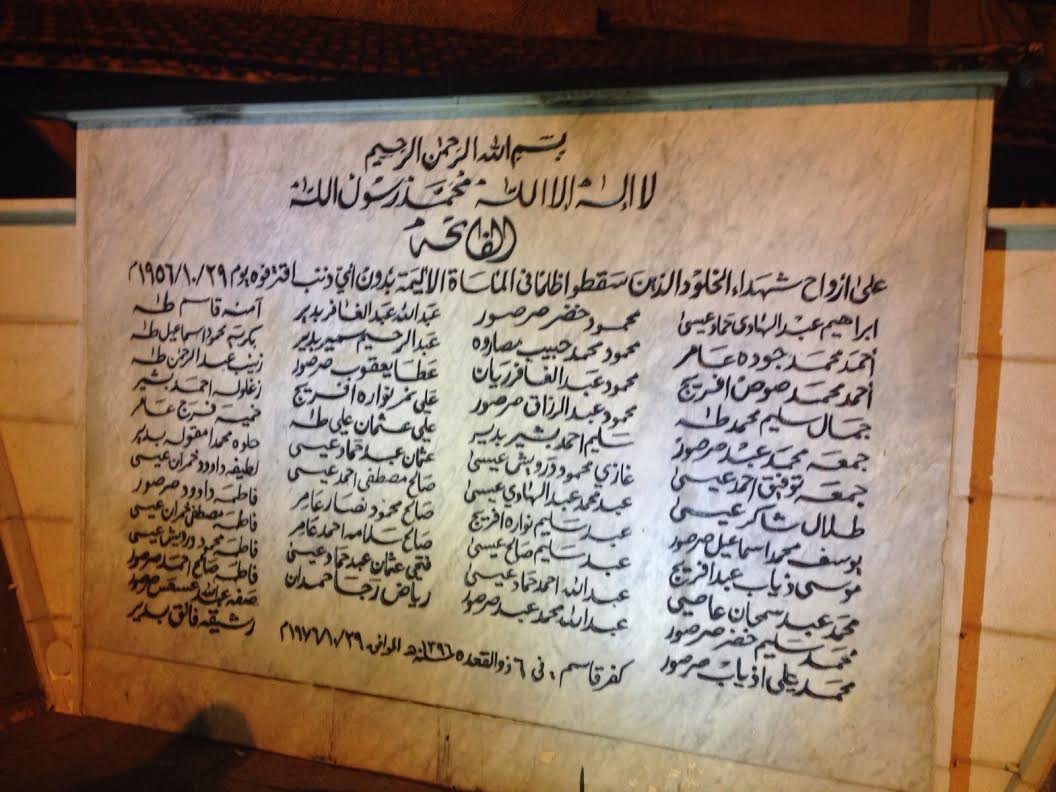 بسم الله الرحمن الرحيم
لا اله إلا الله محمد رسول الله
الفاتحه
على أرواح شهداء الخلود الذين سقطوا ظلما في المأساة الأليمة بدون أي ذنب اقترفوه يوم ١٩٥٦/١٠/٢٩م
ابراهيم عبد الهادي حماد عيسى
أحمد محمد جوده عامر
أحمد محمد صوص افريج
جمال سليم محمد طه
جمعه محمد عبد صرصور
جمعه توفيق احمد عيسى
طلال شاكر عيسى
يوسف محمد اسماعيل صرصور
موسى ذياب عبد افريج
محمد عبد سمحان عاصي
محمد سليم خضر صرصور
محمد علي اذياب صرصور
محمود خضر صرصور
محمود محمد حبيب مصاروه
محمود عبد الغافر ريان
محمود عبد الرزاق صرصور
سليم احمد بشير بدير
غازي محمود درويش عيسى
عبد محمد عبد الهادي عيسى
عبد سليم نواره افريج
عبد سليم صالح عيسى
عبد الله احمد حماد عيسى
عبد الله محمد عبد صرصور
عبد الله عبد الغافر بدير
عبد الرحيم سمير بدير
عطا يعقوب صرصور
علي نمر نواره افريج
علي عثمان علي طه
عثمان عبد حماد عيسى
صالح مصطفى احمد عيسى
صالح محمود نصار عامر
صالح سلامه احمد عامر
فتحي عثمان عبد حماد عيسى
رياض رجا حمدان
آمنه قاسم طه
بكريه محمود اسماعيل طه
زينب عبد الرحمن طه
زغلوله احمد بشير
خميسه فرج عامر
حلوه محمد بدير
لطيفه داوود عيسى
فاطمه داوود صرصور
فاطمه مصطفى عيسى
فاطمه محمود درويش عيسى
فاطمه صالح احمد صرصور
عبد الله صرصور
رشيقه فائق بدير
كفر قاسم : في ٦ ذو القعده سنة ١٣٩٦ه الموافق ١٩٧٦/١٠/٢٩م